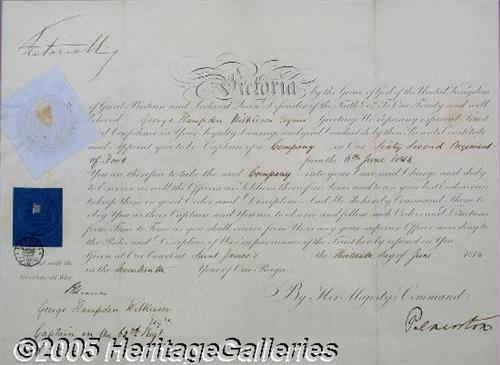 Victoria by the Grace of God of the United Kingdom
of Great Britain and Ireland Queen Defender of the Faith &c. To Our Trusty and well
beloved George Hampden Wilkinson Esquire Greeting We reposing especial Trust
and Confidence in Your Loyalty, Courage, and good Conduct do by these Presents Constitute
and Appoint you to be Captain of a Company in Our Sixty Second Regiment
of Foot from the 6th June
You are therefore to take the said Company into your Care and Charge and duly
to Exercise as well the Officers as Soldiers thereof in Arms and to use your best endeavours
to keep them in good Order and Discipline And We do hereby Command Them to
obey You as their Captain and You are to observe and follow such Orders and Directions
from Time to Time as you shall receive from Us or any your superior Officer according to
the Rules and Discipline of War in pursuance of the Trust hereby reposed in You
Given at Our Court at Saint James's the Thirteenth day of June
in the Seventeenth Year of Our Reign
By Her Majesty's Command
Palmerston
with the
Secretary at War
George Hampden Wilkinson
Captain in the 62nd Regt
©2005 HeritageGalleries